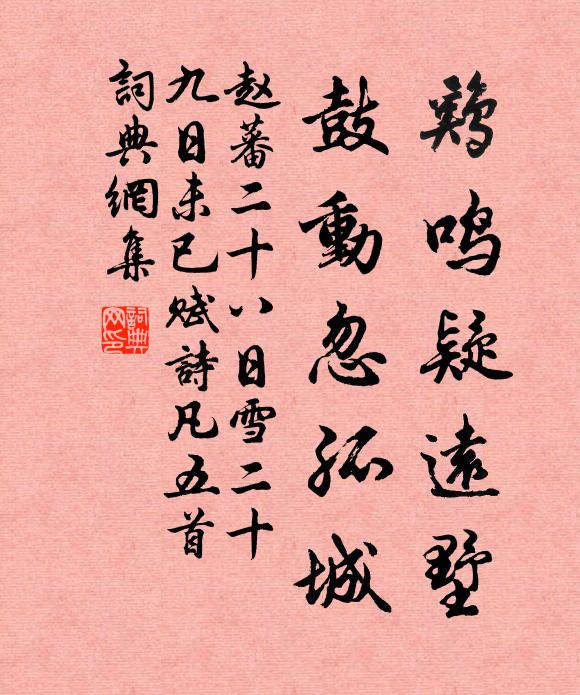 鷄鳴疑遠墅
鼓動忽孤城
赵蕃二十八日雪二十
九日未已赋詩凡五首
詞典網集
詞典网印